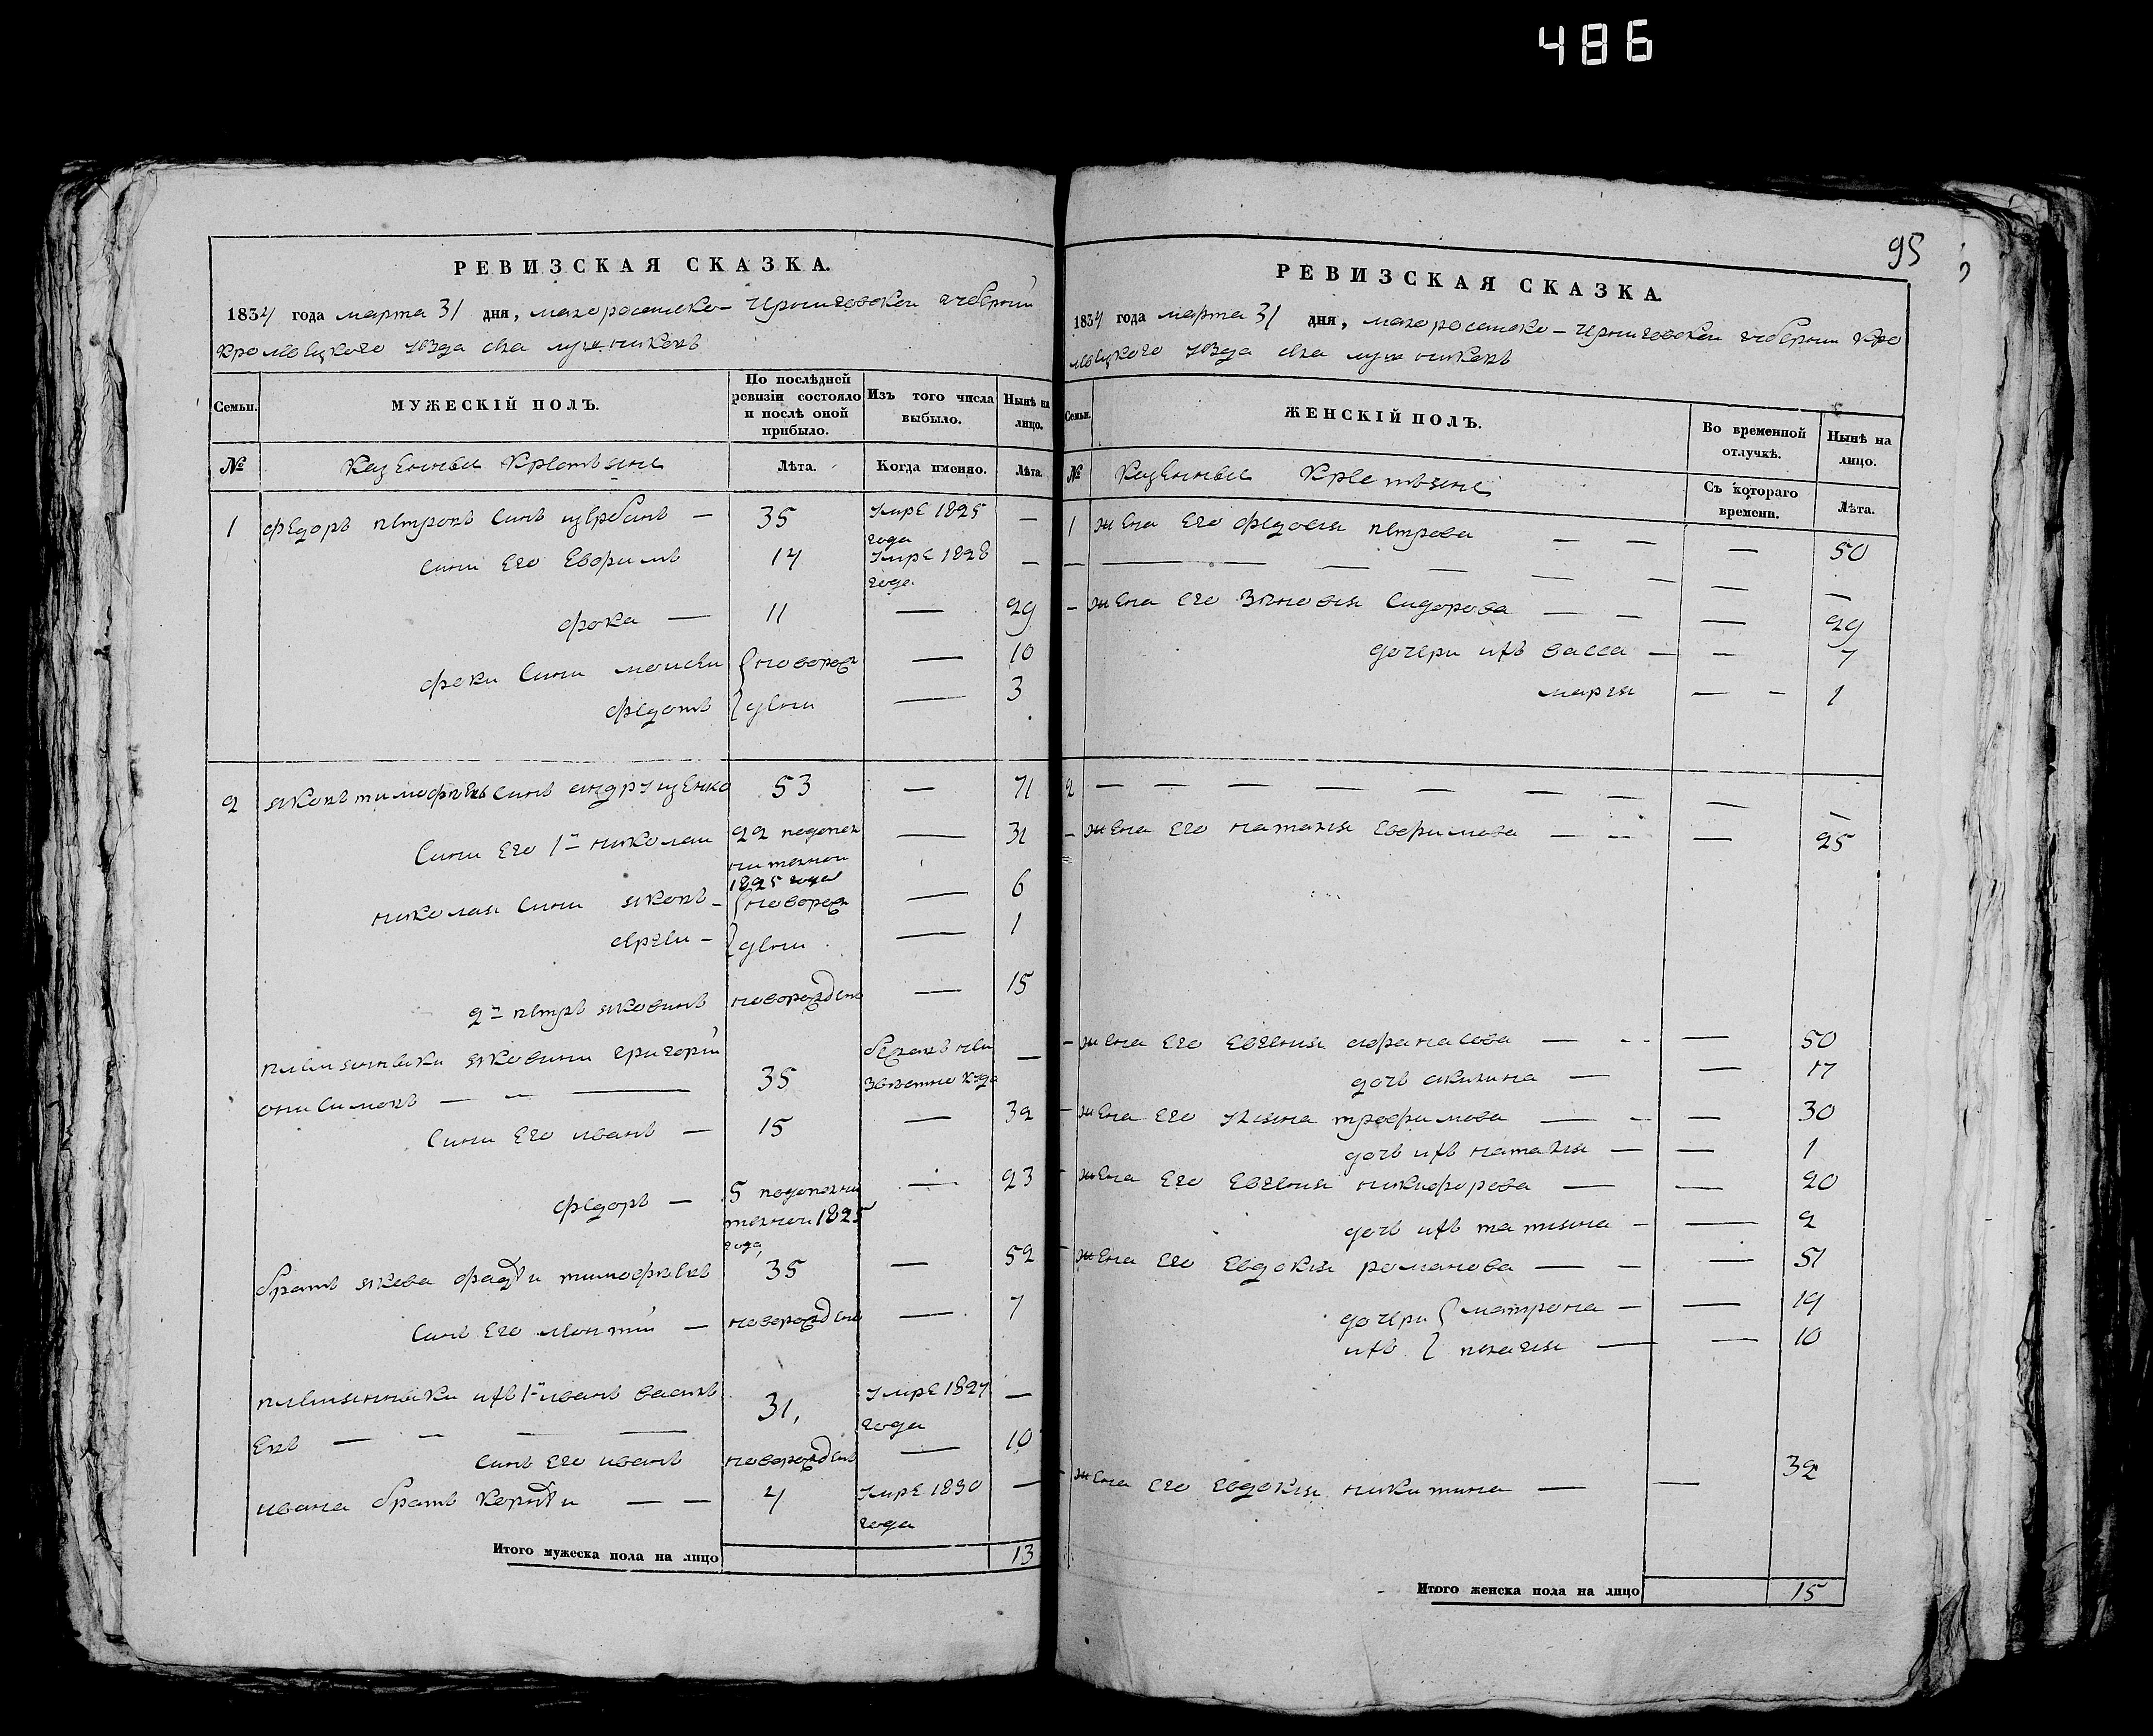 486
95
РЕВИЗСКАЯ СКАЗКА.
1834 года марта 31 дня, малоросииско-черниговскои губернии
кролевецкого уезда села лушникъ
Семьи.
МУЖЕСКІЙ ПОЛЪ.
По послѣдней ревизіи состояло и послѣ оной прибыло.
Изъ того числа выбыло.
Нынѣ на лицо.
№ казенные крестяне Лѣта. Когда именно. Лѣта.
1 федоръ петровъ синъ 35 умре 1825 года —
сини его ефримъ 14 умре 1828 года —
фока — 11 — 29
фоки сини моисеи новорож — 10
федотъ дени — 3
2 яковъ тимофѣевъ синъ андрущенко 53 — 71
сини его 1й николаи 22 — 31
1825 года
николая сини яковъ — новорож — 6
сергеи — дени — 1
2й петръ яковинъ новорожденъ — 15
племянники яковини григорій 35 бежалъ неи —
онисимовъ — — — звестно куда
сини его иванъ — 15 — 32
федоръ — 5 — 23
1825 года
братъ якова фадѣи тимофѣевъ 35 — 52
синъ его леонтій — новорожденъ — 7
племянники ихъ 1й иванъ василь 31, умре 1824 —
евъ — — — — года
синъ его иванъ новорожденъ — 10
ивана братъ корнѣи — — 4 умре 1830 —
года
Итого мужеска пола на лицо 13
РЕВИЗСКАЯ СКАЗКА.
1834 года марта 31 дня, малоросииско-черниговскои губернии кро
левецкого уезда села лушникъ
Семьи.
ЖЕНСКІЙ ПОЛЪ.
Во временной отлучкѣ.
Нынѣ на лицо.
№ казенные крестяне Съ котораго времени. Лѣта.
1 жена его федосия петрова — — — 50
— — — — — — — — — —
— жена его зѣновия сидорова — — — 29
дочери ихъ васса — — 7
мария — — 1
2 — — — — — — — — —
— жена его наталия ефримова — — — 25
— жена его евгения афанасова — — — 50
дочь акилина — — 17
— жена его улияна трофимова — — — 30
дочь ихъ наталия — — 1
жена его евгения никифорова — — 20
дочь ихъ татияна — — 2
жена его евдокия романова — — — 51
дочери матрона — — 19
ихъ пелагия — — 10
жена его евдокия никитина — — 32
Итого женска пола на лицо 15